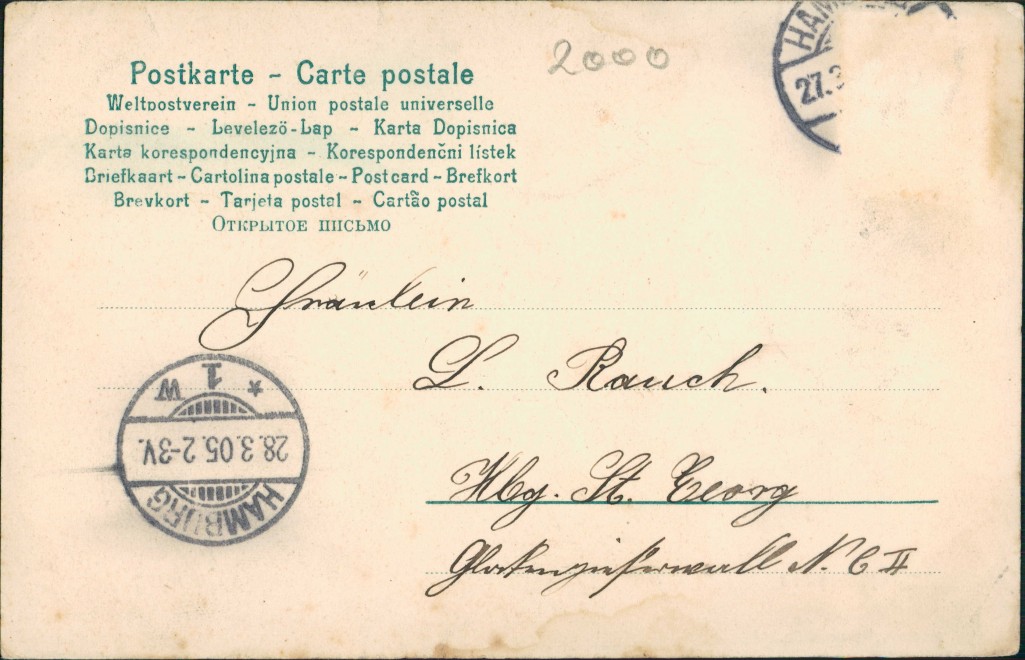 2000
HAM
27.3
Postkarte - Carte postale
Weltpostverein - Union postale universelle
Dopisnice - Levelező-Lap - Karta Dopisnica
Karta korespondencyjna - Korespondenčni lístek
Briefkaart - Cartolina postale - Post card - Brefkort
Brevkort - Tarjeta postal - Cartão postal
Открытое письмо
Fräulein
L. Rauch.
Hbg. St. Georg
Glockengießerwall N. 6 II
1
* W
28.3.05. 2-3V.
HAMBURG